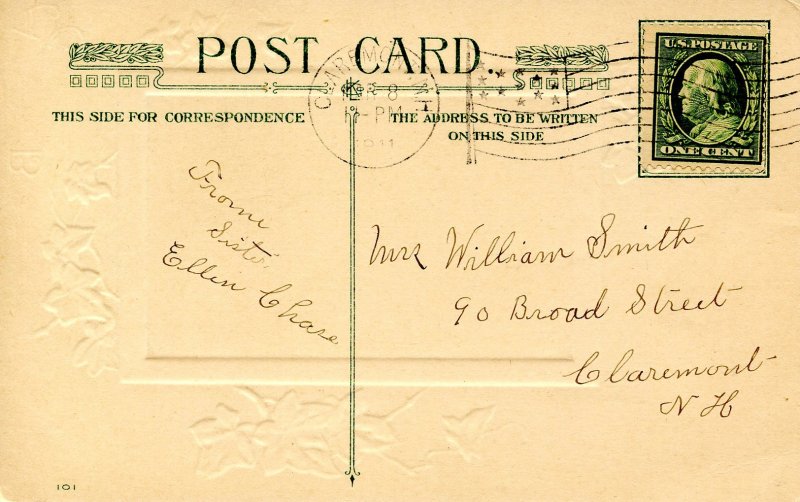 POST CARD
THIS SIDE FOR CORRESPONDENCE
THE ADDRESS TO BE WRITTEN
ON THIS SIDE
CLAREMONT
8
PM
1911
U.S. POSTAGE
ONE CENT
Frome
Sister
Ellin Chase
Mrs William Smith
90 Broad Street
Claremont
N H
101